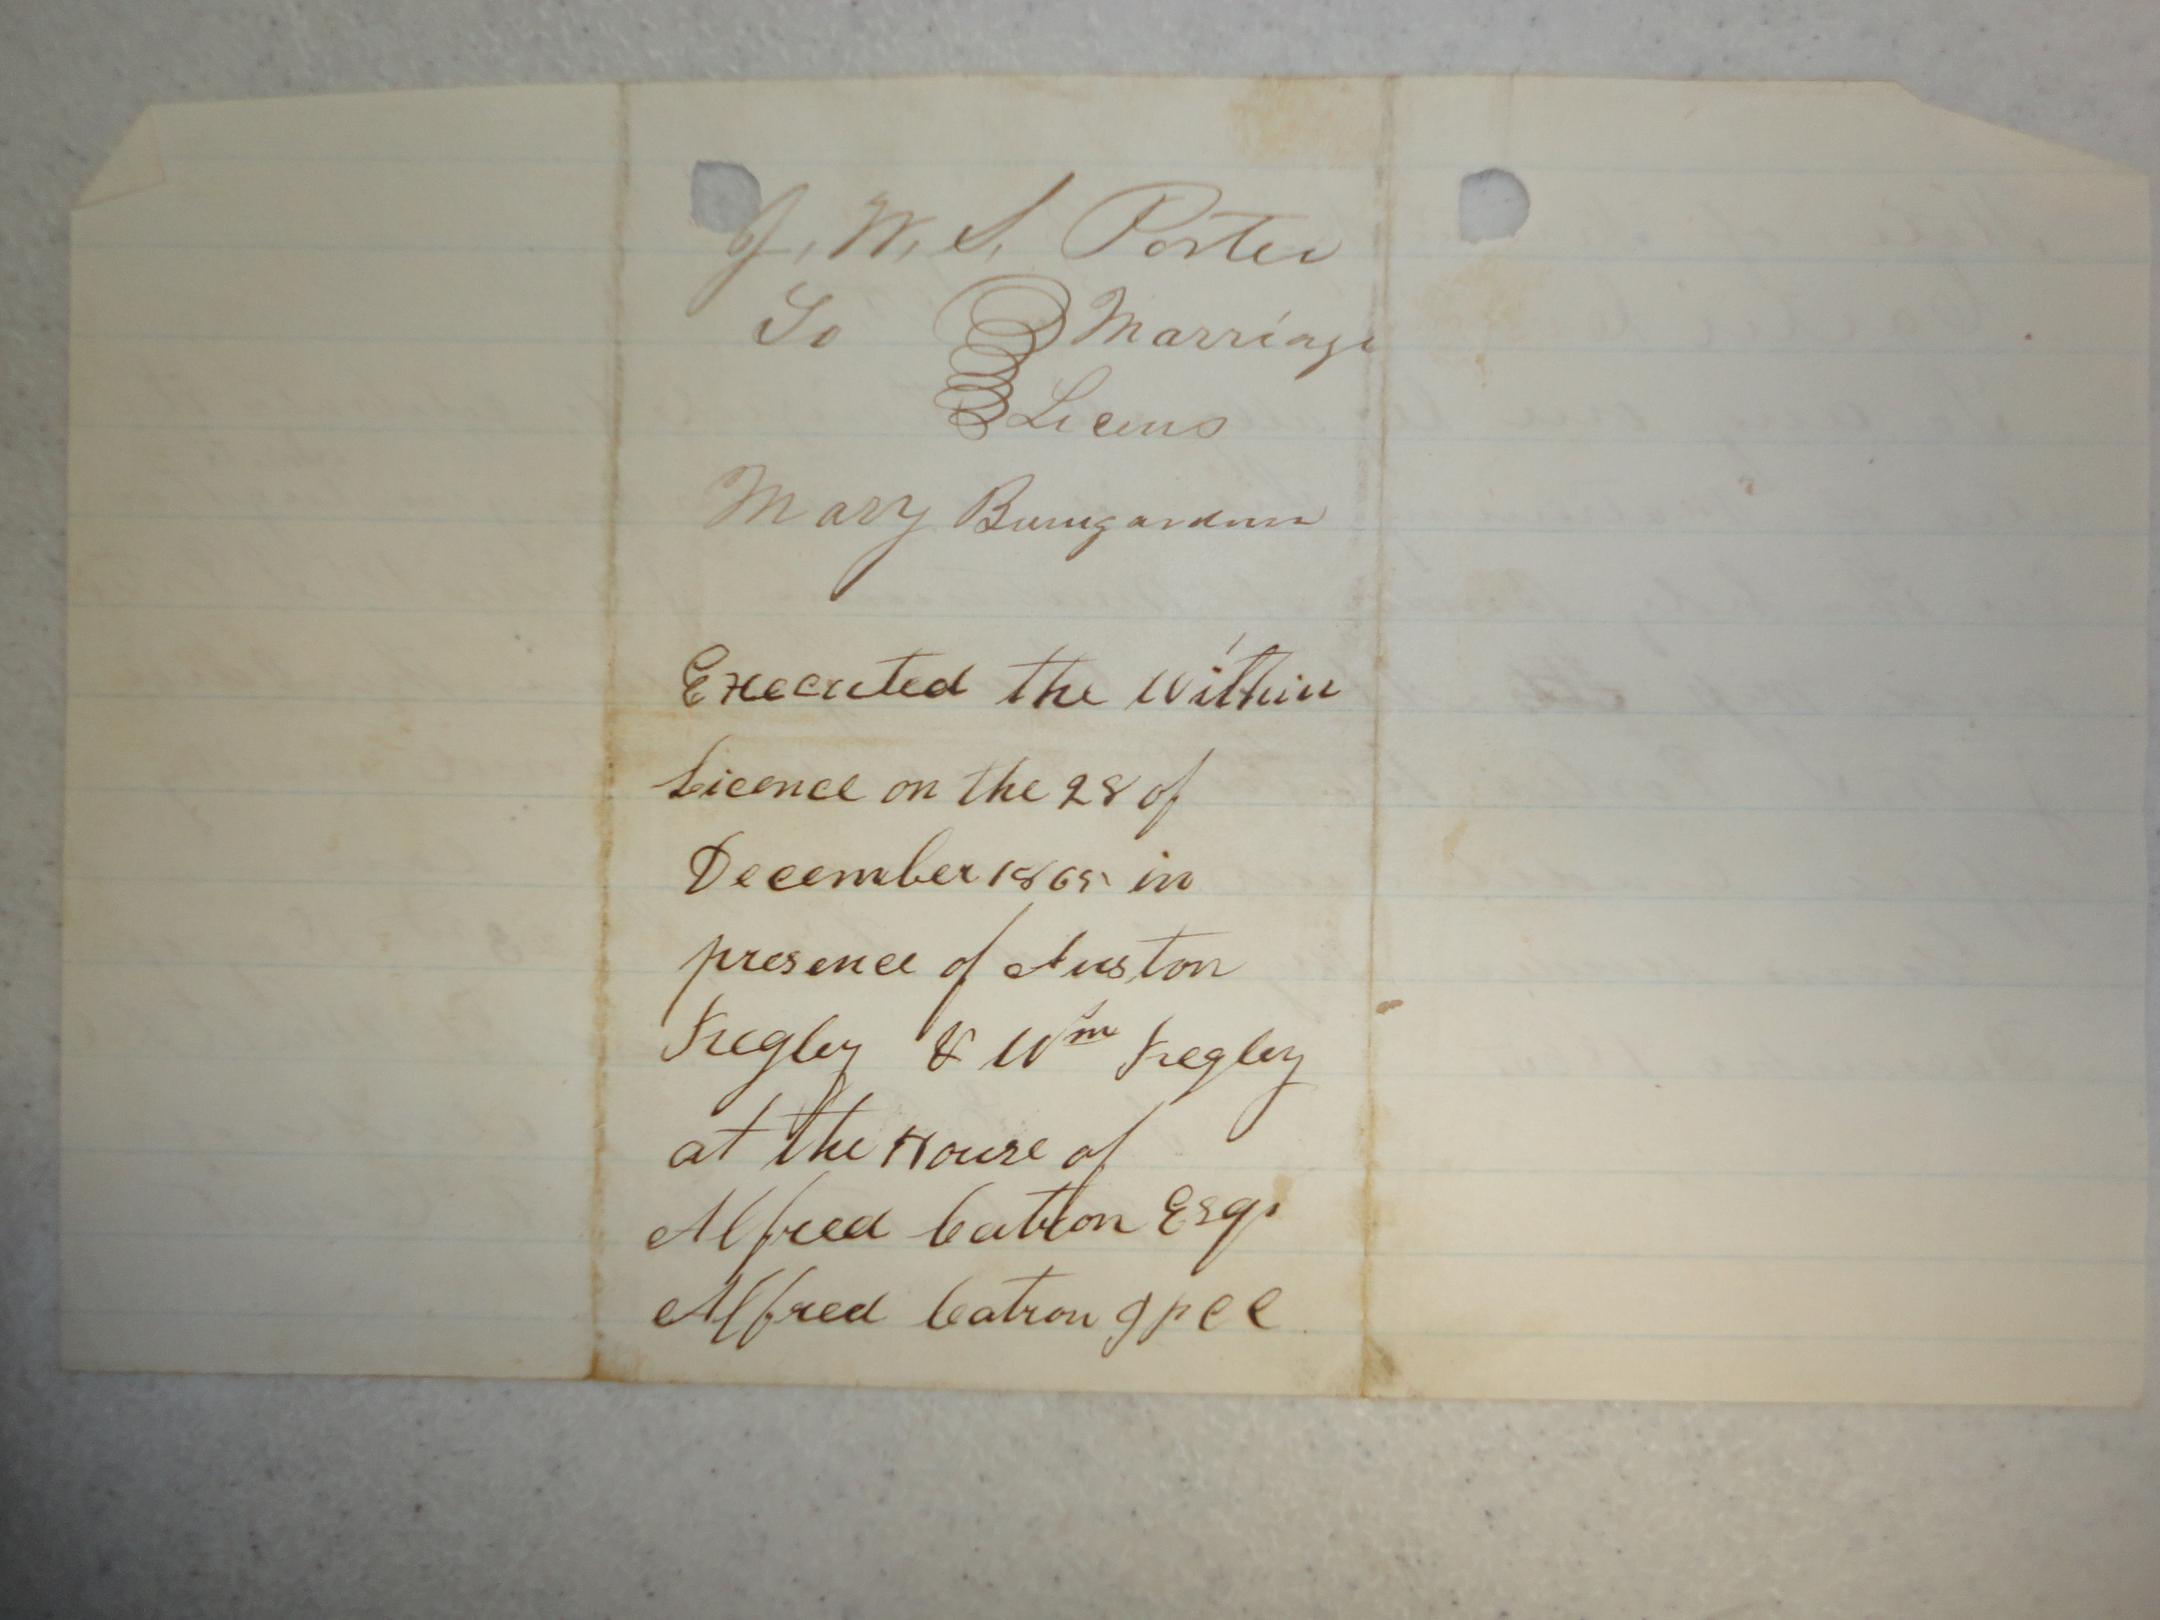 J. W. S. Porter
To Marriage
Licens
Mary Bumgardner
Executed the Within
Licence on the 28 of
December 1865 in
presence of Auston
Kegley & Wm Kegley
at the House of
Alfred Catron Esqr
Alfred Catron JPCC